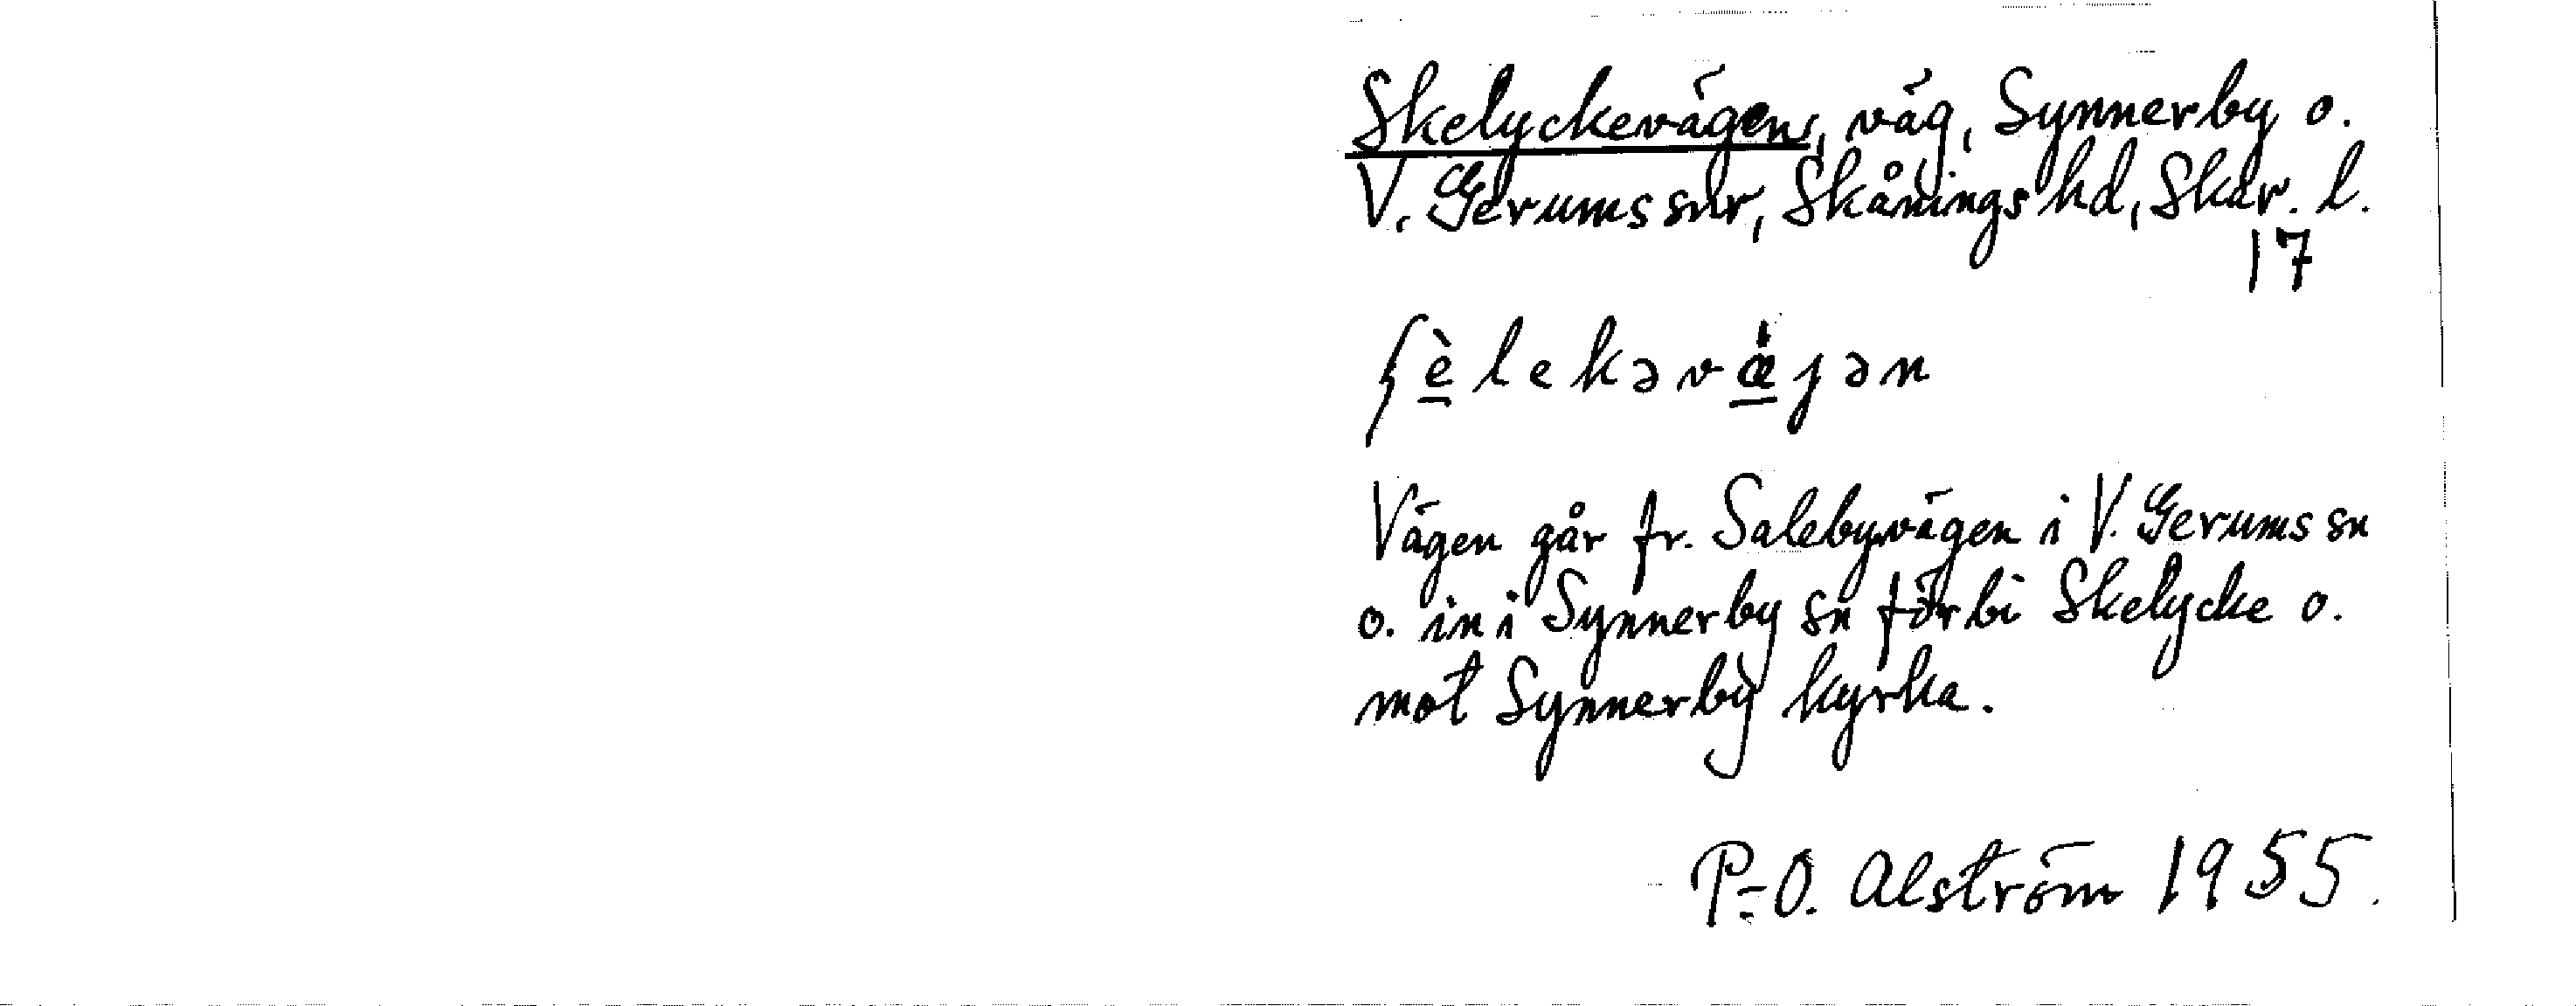 Skelyckevägen, väg, Synnerby o.
V. Gerums snr, Skånings hd, Skar. l.
17
ʃèlekəvæ̀jən
Vägen går fr. Salebyvägen i V. Gerums sn
o. in i Synnerby sn förbi Skelycke o.
mot Synnerby kyrka.
P.-O. Alström 1955.